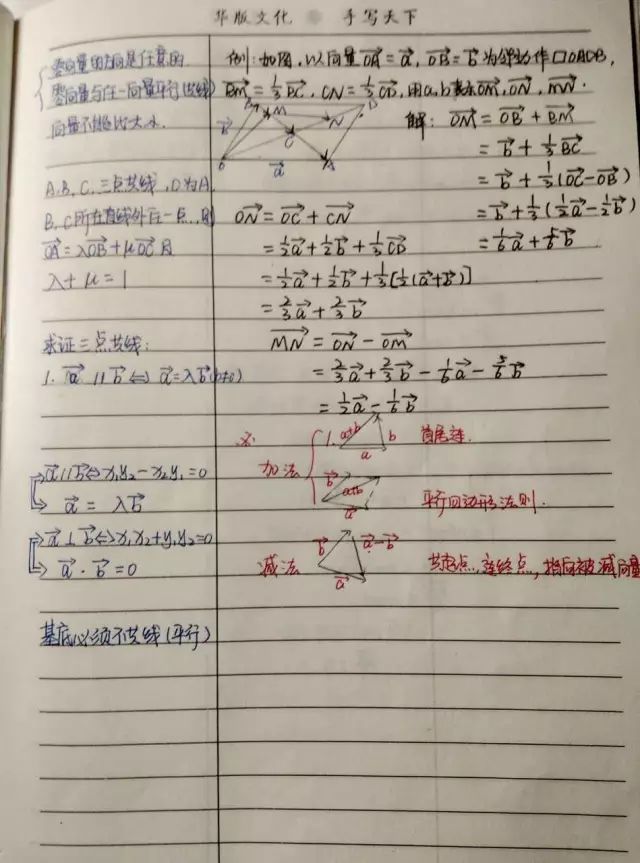 华版文化 手写天下
零向量的方向是任意的
零向量与任一向量平行(共线)
向量不能比大小.
A.B.C.三点共线,O为A.
B.C所在直线外任一点.,则
OA=λOB+μOC 且
λ+μ=1
求证三点共线:
1. a∥b⇔a=λb(b≠0)
a∥b⇔x₁y₂-x₂y₁=0
a=λb
a⊥b⇔x₁x₂+y₁y₂=0
a·b=0
基底必须不共线(平行)
例:如图,以向量OA=a,OB=b为邻边作□OADB,
BM=1/3BC,CN=1/3CD,用a,b表示OM,ON,MN.
B M D N C O A a b
解:OM=OB+BM
=b+1/3BC
=b+1/3(OC-OB)
=b+1/3(1/2a-1/2b)
=1/6a+5/6b
ON=OC+CN
=1/2a+1/2b+1/3CD
=1/2a+1/2b+1/3[1/2(a+b)]
=2/3a+2/3b
MN=ON-OM
=2/3a+2/3b-1/6a-5/6b
=1/2a-1/6b
※
加法
1. a+b b a 首尾连.
b a+b a 平行四边形法则.
减法 b a-b a 共起点,连终点,指向被减向量